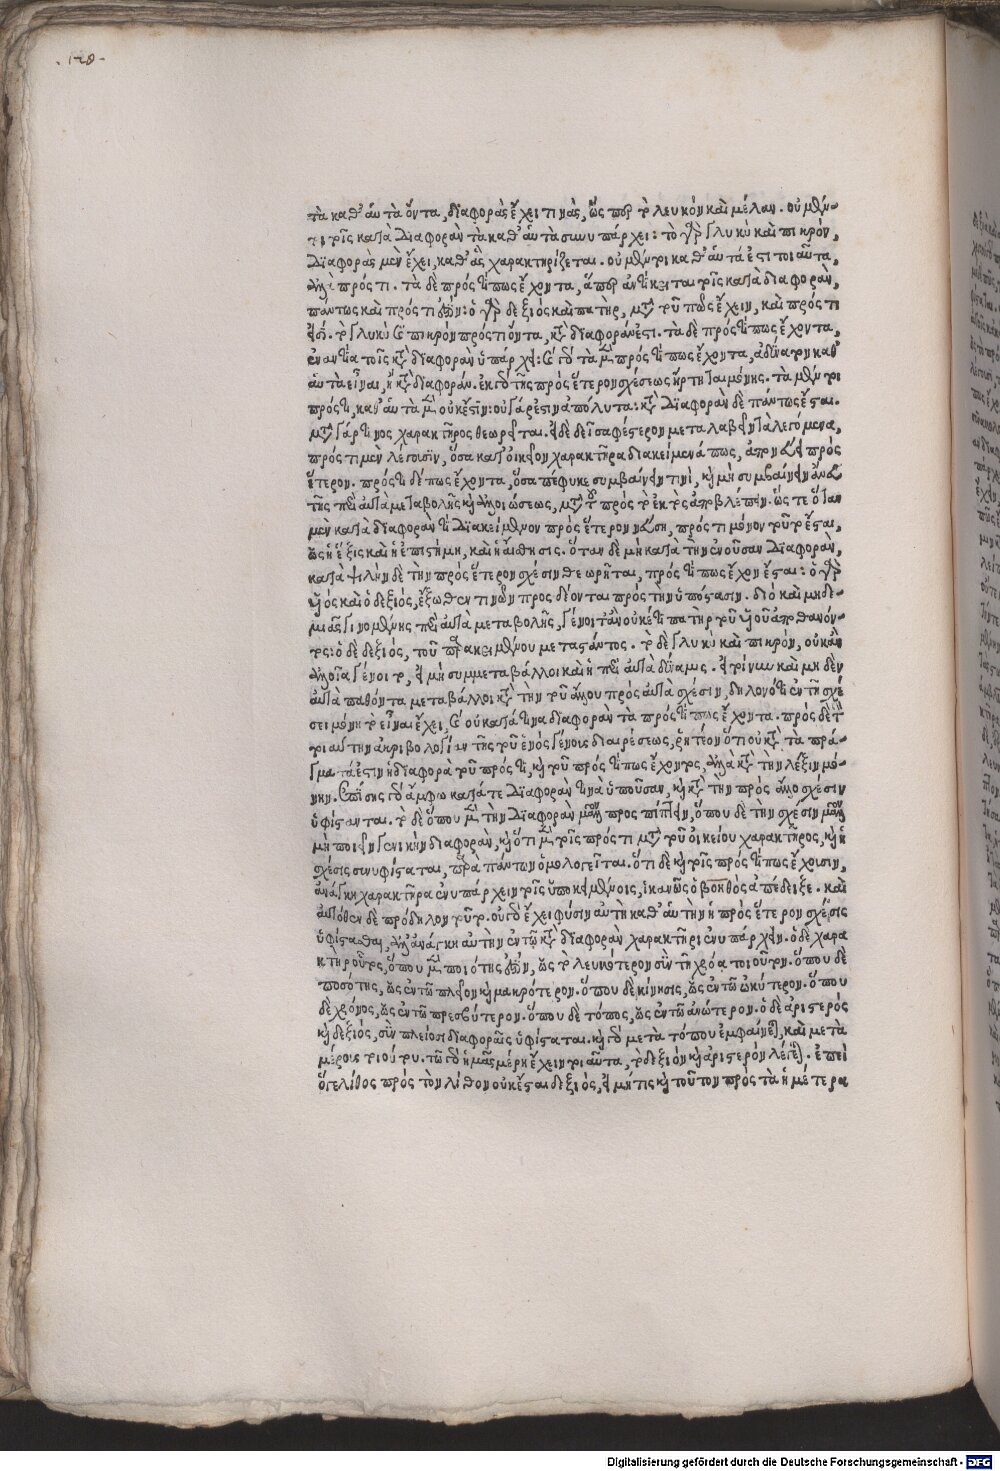 ·128·
τὰ καθ' αὑτὰ ὄντα, διαφορὰς ἔχει τινὰς, ὥσπερ τὸ λευκὸν καὶ μέλαν. οὐ μὴν
τι τοῖς κατὰ διαφορὰν τὰ καθ' αὑτὰ συνυπάρχει: τὸ γὰρ γλυκὺ καὶ πικρὸν,
διαφορὰς μὲν ἔχει, καθ' ἃς χαρακτηρίζεται. οὐ μὴν τι καθ' αὑτά ἐστι τοιαῦτα,
ἀλλὰ πρός τι. τὰ δὲ πρός τί πως ἔχοντα, ἅπερ ἀντίκειται τοῖς κατὰ διαφορὰν,
πάντως καὶ πρός τι ἐστίν: ὁ γὰρ δεξιὸς καὶ πατὴρ, μετὰ τοῦ πῶς ἔχειν, καὶ πρός τι
εἰσι. τὸ γλυκὺ καὶ πικρὸν πρός τι ὄντα, κατὰ διαφοράν ἐστι. τὰ δὲ πρός τί πως ἔχοντα,
ἐναντία τοῖς κατὰ διαφορὰν ὑπάρχει: καὶ γὰρ τὰ μὲν πρός τί πως ἔχοντα, ἀδύνατον καθ'
αὑτὰ εἶναι, ἢ κατὰ διαφοράν. ἐκ γὰρ τῆς πρὸς ἕτερον σχέσεως ἤρτηται μόνης. τὰ μὲν τοι
πρός τι, καθ' αὑτὰ μὲν οὐκ ἔστιν: οὐ γάρ ἐστιν ἀπόλυτα: κατὰ διαφορὰν δὲ πάντως ἔσται.
μετὰ γάρ τινος χαρακτῆρος θεωρεῖται. εἰ δὲ δεῖ σαφέστερον μεταλαβεῖν τὰ λεγόμενα,
πρός τι μὲν λέγουσιν, ὅσα κατ' οἰκεῖον χαρακτῆρα διακείμενά πως, ἀπονεύει πρὸς
ἕτερον. πρός τι δέ πως ἔχοντα, ὅσα πέφυκε συμβαίνειν τινὶ, καὶ μὴ συμβαίνειν ἄνευ
τῆς περὶ αὐτὰ μεταβολῆς καὶ ἀλλοιώσεως, μετὰ τοῦ πρὸς τὸ ἐκτὸς ἀποβλέπειν. ὥστε ὅταν
μὲν κατὰ διαφορὰν τί διακείμενον πρὸς ἕτερον νεύσῃ, πρός τι μόνον τοῦτο ἔσται,
ὡς ἡ ἕξις καὶ ἡ ἐπιστήμη, καὶ ἡ αἴσθησις. ὅταν δὲ μὴ κατὰ τὴν ἐνοῦσαν διαφορὰν,
κατὰ ψιλὴν δὲ τὴν πρὸς ἕτερον σχέσιν θεωρῆται, πρός τί πως ἔχον ἔσται: ὁ γὰρ
υἱὸς καὶ ὁ δεξιὸς, ἔξωθεν τινῶν προσδέονται πρὸς τὴν ὑπόστασιν. διὸ καὶ μηδε-
μιᾶς γινομένης περὶ αὐτὰ μεταβολῆς, γένοιτ' ἂν οὐκέτι πατὴρ τοῦ υἱοῦ ἀποθανόν-
τος: ὁ δὲ δεξιὸς, τοῦ παρακειμένου μεταστάντος. τὸ δὲ γλυκὺ καὶ πικρὸν, οὐκ ἂν
ἀλλοῖα γένοιτο, εἰ μὴ συμμεταβάλλοι καὶ ἡ περὶ αὐτὰ δύναμις. εἰ τοίνυν καὶ μηδὲν
αὐτὰ παθόντα μεταβάλλοι κατὰ τὴν τοῦ ἄλλου πρὸς αὐτὰ σχέσιν, δηλονότι ἐν τῇ σχέ
σει μόνῃ τὸ εἶναι ἔχει, καὶ οὐ κατά τινα διαφορὰν τὰ πρός τί πως ἔχοντα. πρὸς δὲ τὴν
τοιαύτην ἀκριβολογίαν τῆς τοῦ ἑνὸς γένους διαιρέσεως, ῥητέον ὅτι οὐ κατὰ τὰ πρά-
γματά ἐστιν ἡ διαφορὰ τοῦ πρός τι, καὶ τοῦ πρός τί πως ἔχοντος, ἀλλὰ κατὰ τὴν λέξιν μό-
νην. ἐπίσης γὰρ ἄμφω κατά τε διαφορὰν τινὰ ὑποῦσαν, καὶ κατὰ τὴν πρὸς ἄλλο σχέσιν
ὑφίστανται. τὸ δὲ ὅπου μὲν τὴν διαφορὰν μᾶλλον προσπίπτειν, ὅπου δὲ τὴν σχέσιν μᾶλλον
μὴ ποιεῖν γενικὴν διαφορὰν, καὶ ὅτι μὲν τοῖς πρός τι μετὰ τοῦ οἰκείου χαρακτῆρος, καὶ ἡ
σχέσις συνυφίσταται, παρὰ πάντων ὁμολογεῖται. ὅτι δὲ καὶ τοῖς πρός τί πως ἔχουσιν,
ἀνάγκη χαρακτῆρα ἐνυπάρχειν τοῖς ὑποκειμένοις, ἱκανῶς ὁ βοηθὸς ἀπέδειξε. καὶ
αὐτόθεν δὲ πρόδηλον τοῦτο. οὐ γὰρ ἔχει φύσιν αὐτὴ καθ' αὑτὴν ἡ πρὸς ἕτερον σχέσις
ὑφίστασθαι, ἀλλ' ἀνάγκη αὐτὴν ἐν τῷ κατὰ διαφορὰν χαρακτῆρι ἐνυπάρχειν. ὁ δὲ χαρα
κτὴρ οὗτος, ὅπου μὲν ποιότης ἐστίν, ὡς τὸ λευκότερον σὺν τῇ χρόᾳ τοιοῦτον. ὅπου δὲ
ποσότης, ὡς ἐν τῷ πλεῖον καὶ μακρότερον. ὅπου δὲ κίνησις, ὡς ἐν τῷ ὠκύτερον. ὅπου
δὲ χρόνος, ὡς ἐν τῷ πρεσβύτερον. ὅπου δὲ τόπος, ὡς ἐν τῷ ἀνώτερον. ὁ δὲ ἀριστερὸς
καὶ δεξιὸς, σὺν πλείοσι διαφοραῖς ὑφίσταται. καὶ γὰρ μετὰ τόπου ἐμφαίνεται, καὶ μετὰ
μέρους τοιούτου. τῷ γὰρ ἡμᾶς μέρη ἔχειν τοιαῦτα, τὸ δεξιὸν καὶ ἀριστερὸν λέγεται. ἐπεὶ
ὅγε λίθος πρὸς τὸν λίθον οὐκ ἔσται δεξιὸς, εἰ μή τις καὶ τοῦτον πρὸς τὰ ἡμέτερα
Digitalisierung gefördert durch die Deutsche Forschungsgemeinschaft - DFG